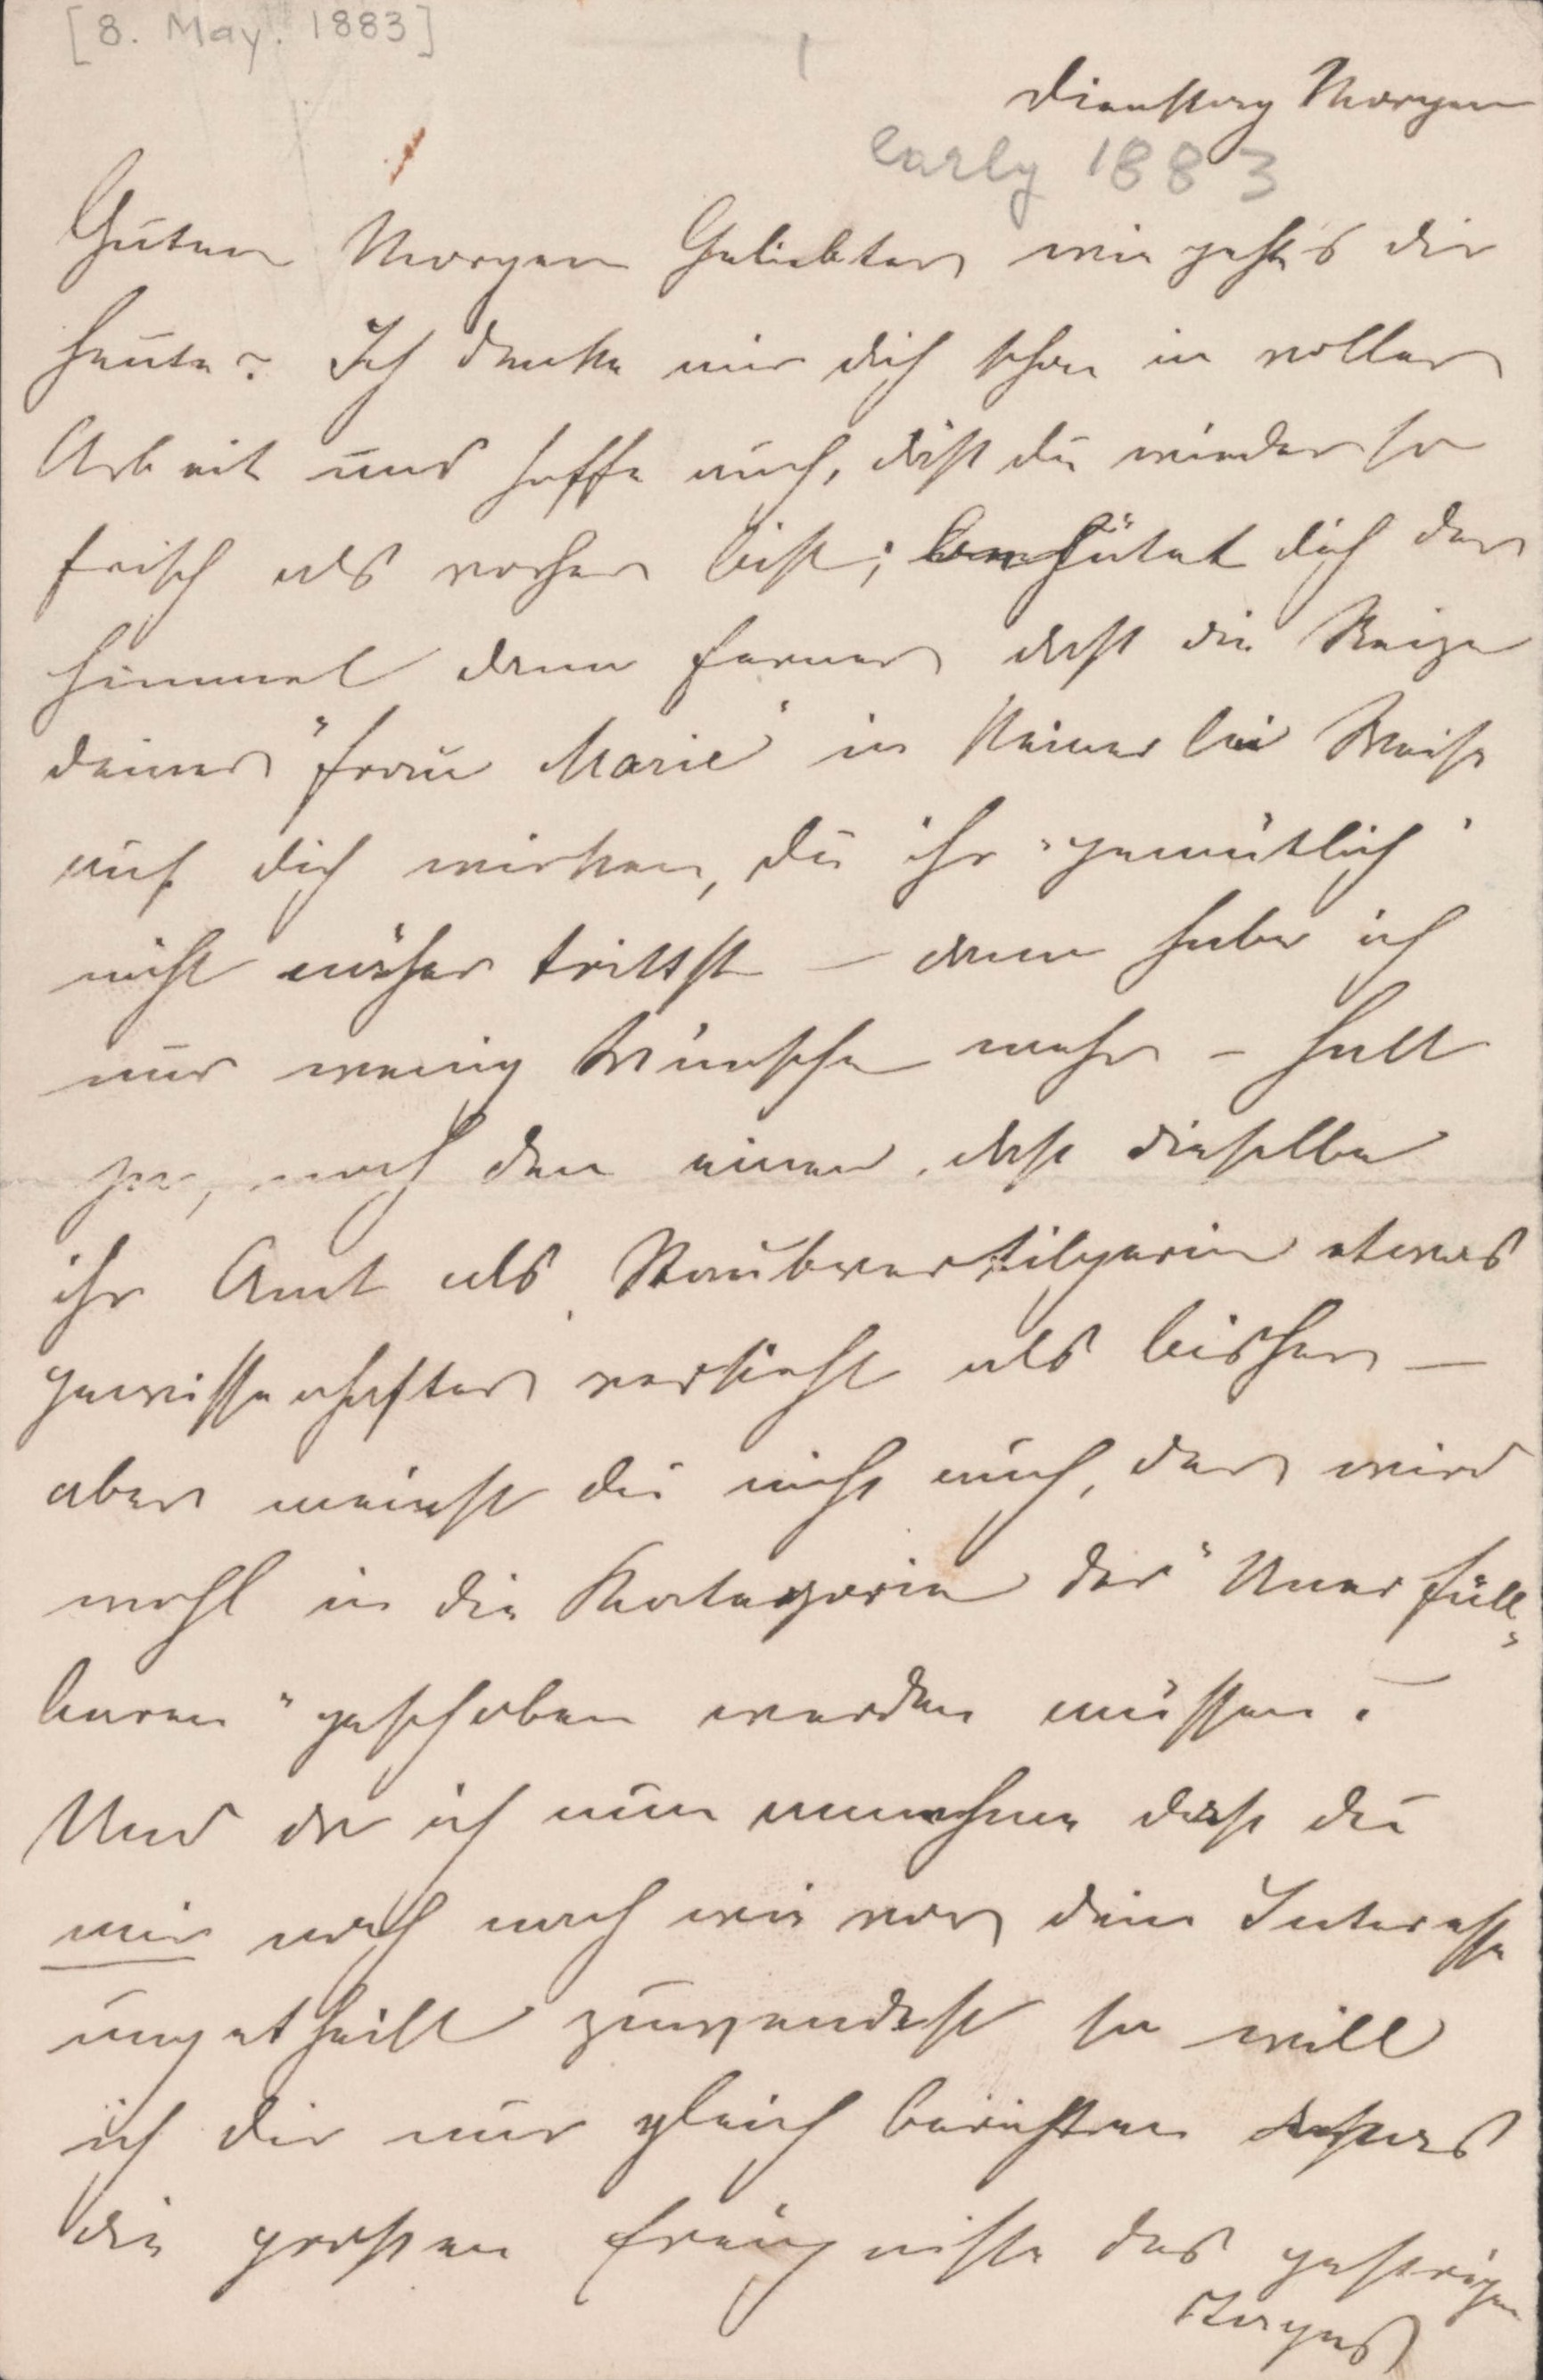 [8. May. 1883]
1
Dienstag Morgen
early 1883
Guten Morgen Geliebter wie geht's dir
heute? Ich denke mir dich schon in voller
Arbeit und hoffe auch, daß du wieder so
frisch als vorher bist; behütet dich der
Himmel dann ferner daß die Reize
deiner "Frau Marie" in keinerlei Weise
auf dich wirken, du ihr "gemütlich"
nicht näher trittst – dann habe ich
nur wenig Wünsche mehr – halt
ja, noch den einen, daß dieselbe
ihr Amt als Staubvertilgerin etwas
gewissenhafter versieht als bisher –
aber meinst du nicht auch, der wird
wohl in die Kategorie der "Unerfüll-
baren" geschoben werden müssen?
Und da ich nun annehme daß du
mir noch nach wie vor dein Interesse
ungetheilt zuwendest so will
ich dir nur gleich berichten
die großen Ereignisse des gestrigen
Tages